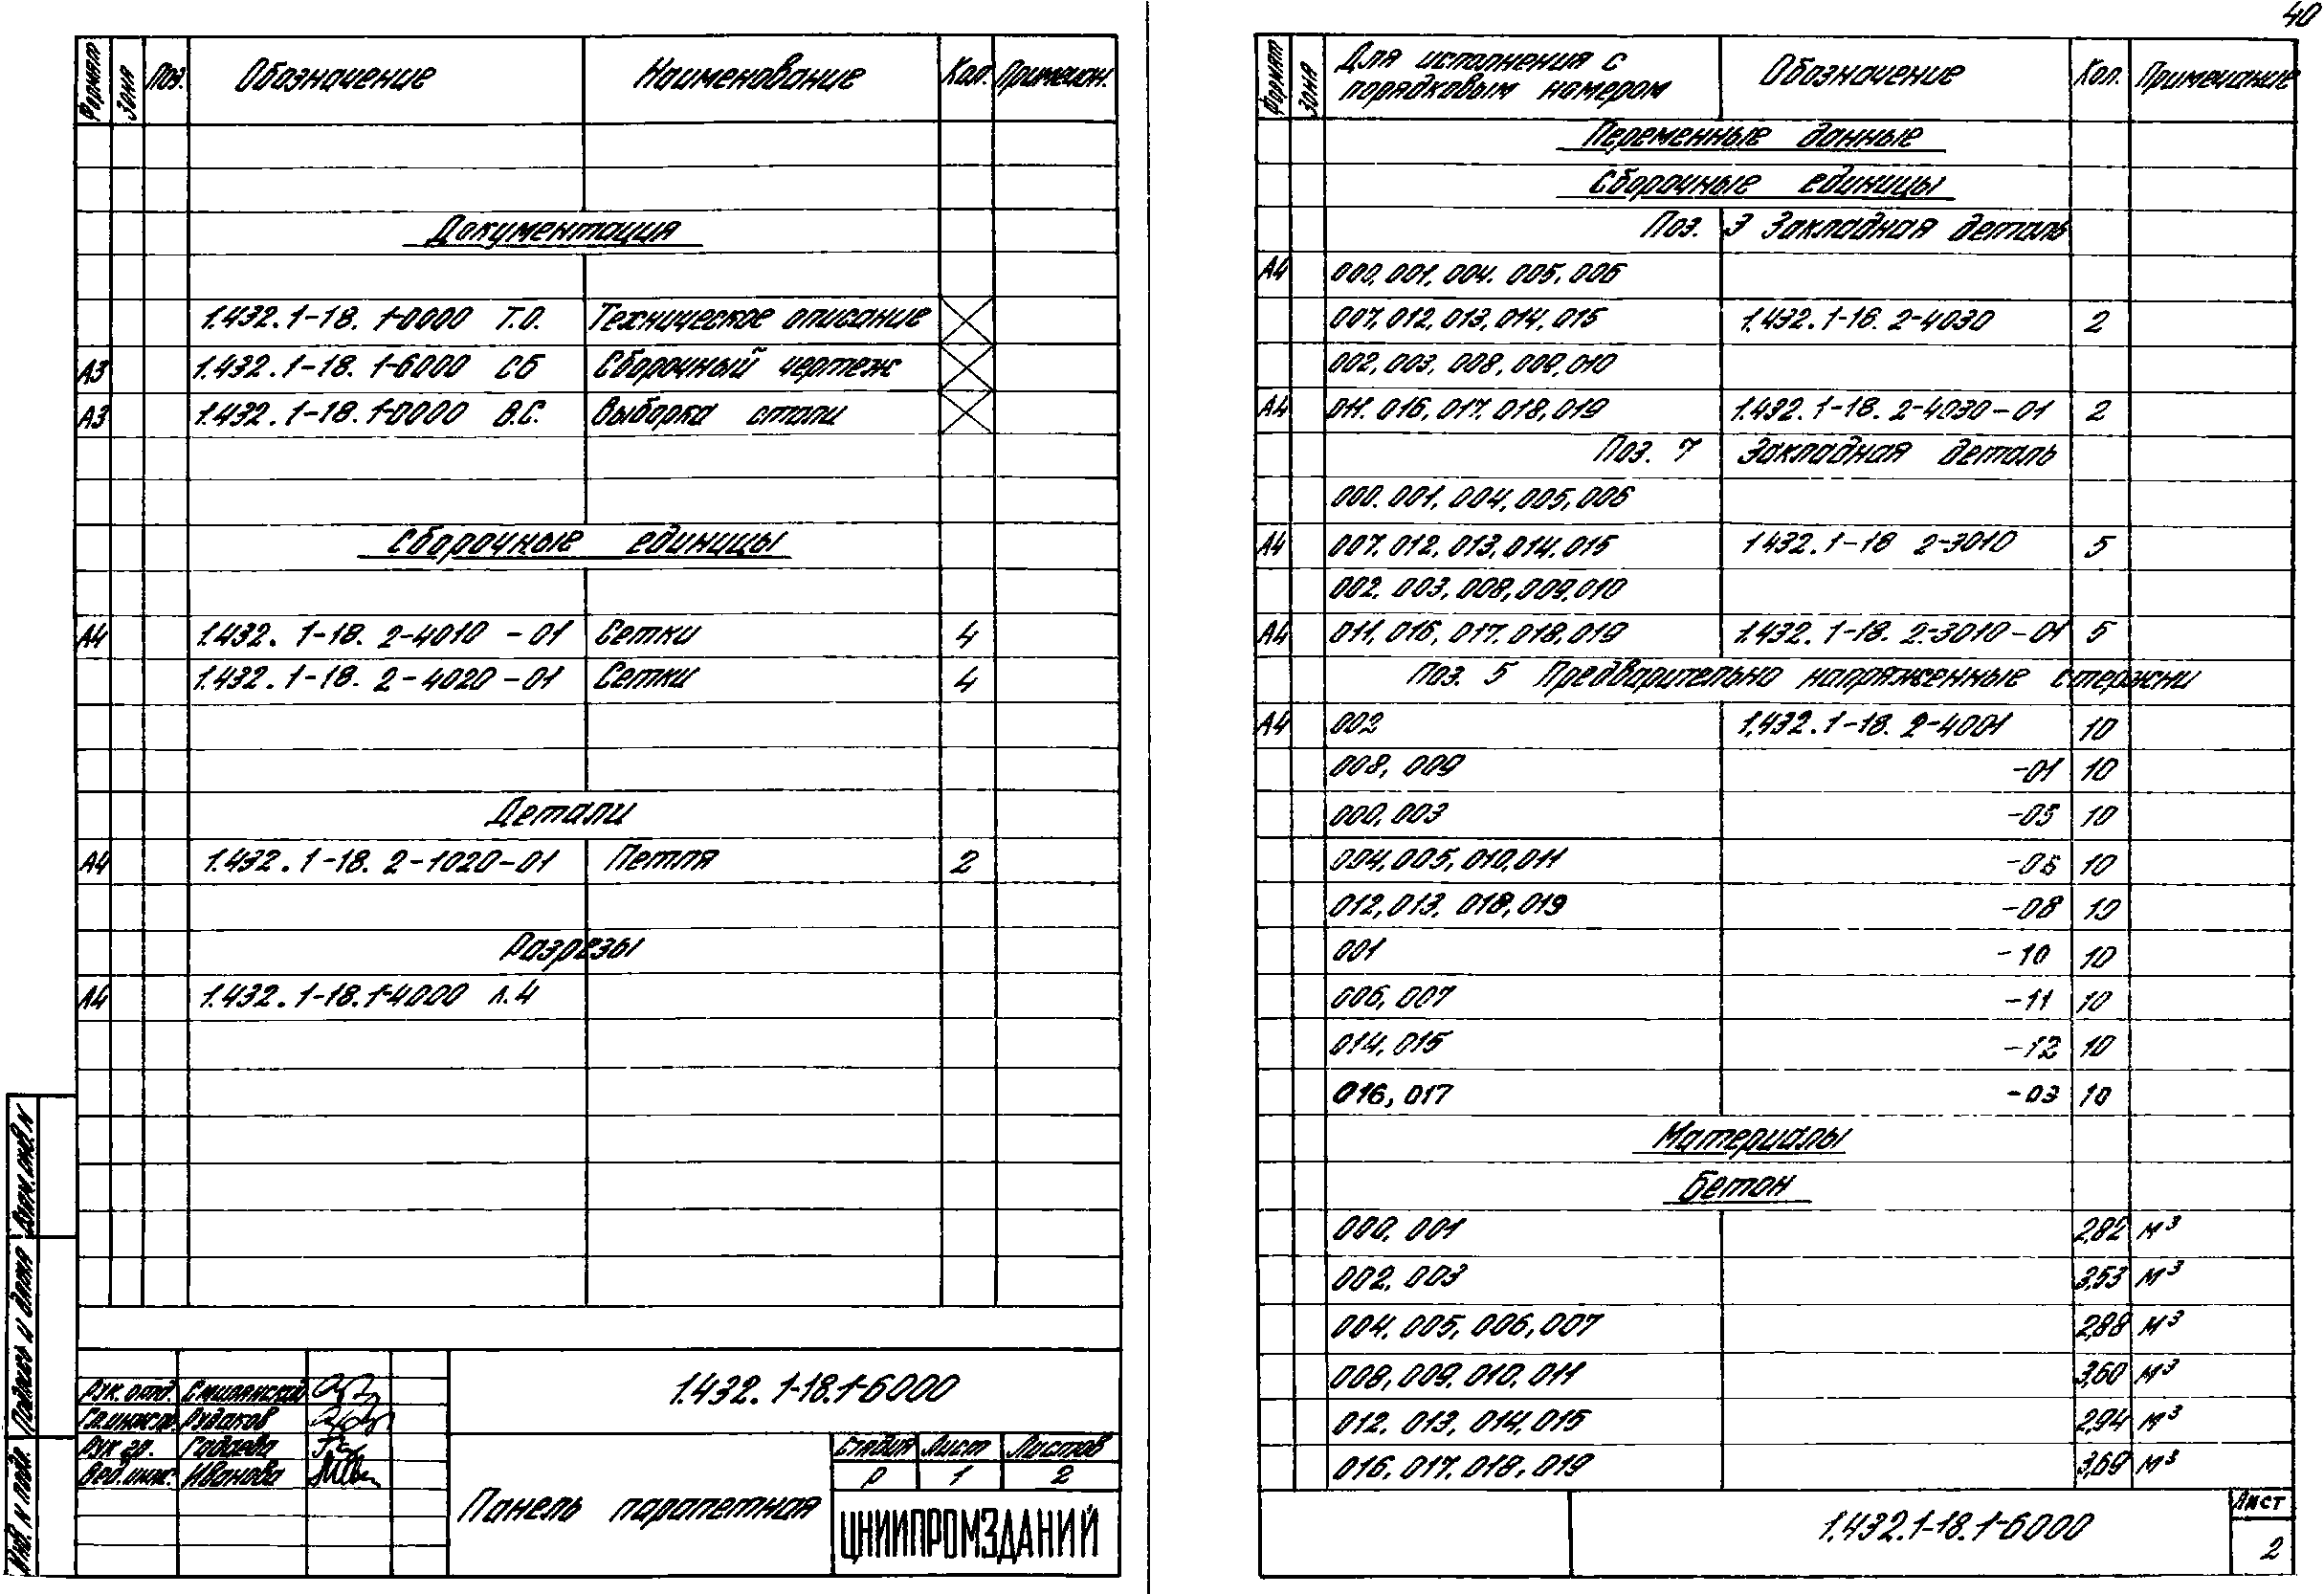 40
Формат Зона Поз. Обозначение Наименование Кол. Примечан.
Документация
1.432.1-18. 1-0000 Т.О. Техническое описание
А3 1.432.1-18. 1-6000 СБ Сборочный чертеж
А3 1.432.1-18.1-0000 В.С. Выборка стали
Сборочные единицы
А4 1.432. 1-18. 2-4010 -01 Сетки 4
1.432. 1-18. 2-4020 -01 Сетки 4
Детали
А4 1.432.1-18. 2-1020-01 Петля 2
Разрезы
А4 1.432.1-18.1-4000 л.4
Взам.инв.N
Подпись и дата
Инв. N подл.
Рук.отд. Смилянский
Гл.инж.пр. Рудаков
Рук гр. Гадаева
Вед.инж. Иванова
1.432. 1-18.1-6000
Панель парапетная
Стадия Лист Листов
Р 1 2
ЦНИИПРОМЗДАНИЙ
Формат Зона Для исполнения с порядковым номером Обозначение Кол. Примечание
Переменные данные
Сборочные единицы
Поз. 3 Закладная деталь
А4 000, 001, 004. 005, 006
007, 012, 013, 014, 015 1.432.1-18. 2-4030 2
002, 003, 008, 009, 010
А4 011. 016, 017. 018, 019 1.432.1-18. 2-4030-01 2
Поз. 7 Закладная деталь
000. 001, 004, 005, 006
А4 007. 012, 013, 014, 015 1.432.1-18 2-3010 5
002. 003, 008, 009, 010
А4 011, 016, 017. 018, 019 1.432. 1-18. 2-3010-01 5
Поз. 5 Предварительно напряженные стержни
А4 002 1.432.1-18. 2-4001 10
008, 009 -01 10
000, 003 -05 10
004, 005, 010, 011 -06 10
012, 013, 018, 019 -08 10
001 -10 10
006, 007 -11 10
014, 015 -12 10
016, 017 -03 10
Материалы
Бетон
000, 001 2,82 м³
002, 003 3,53 м³
004, 005, 006, 007 2,88 м³
008, 009, 010, 011 3,60 м³
012. 013, 014, 015 2,94 м³
016, 017, 018, 019 3,69 м³
1.432.1-18.1-6000
Лист
2